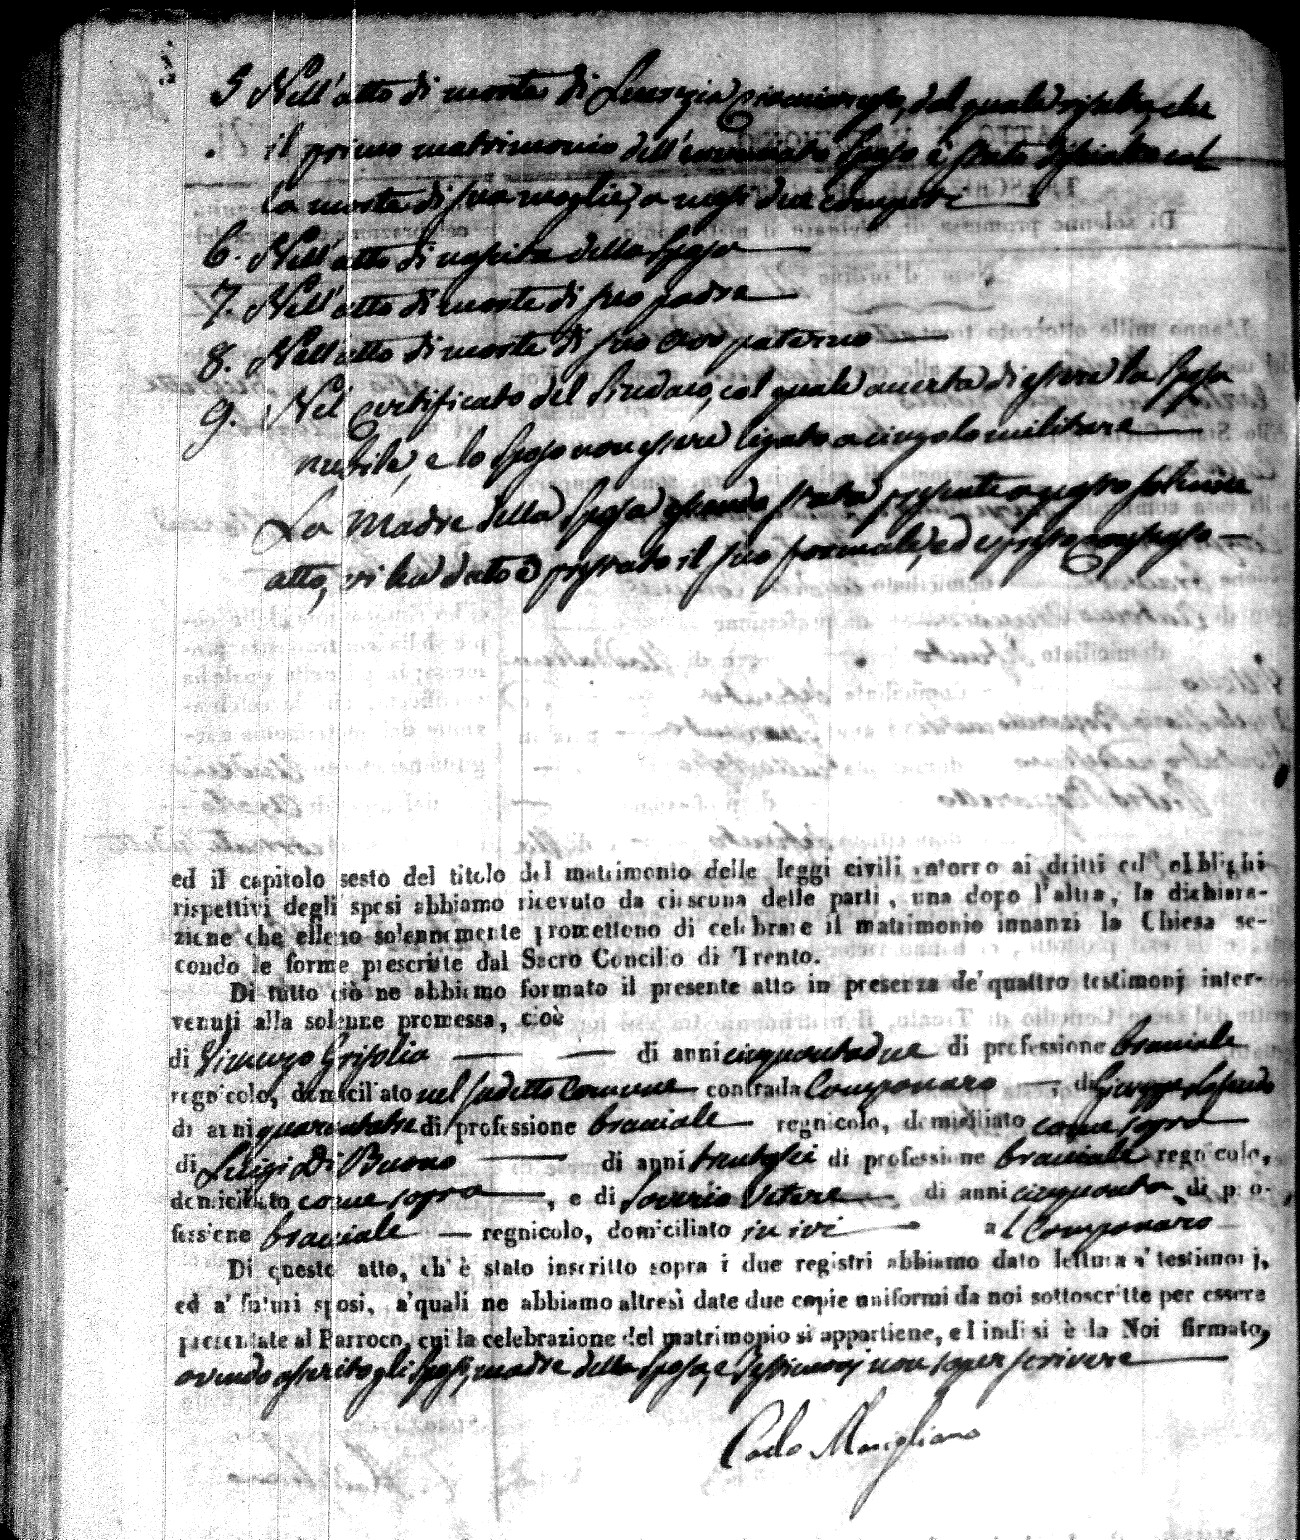 5 Nell'atto di morte di Lucrezia dal quale risulta, che
il primo matrimonio dell'enunciato Sposo è stato disciolto col
la morte di sua moglie, a mesi due compiti
6. Nell'atto di nascita della Sposa
7. Nell'atto di morte di suo padre
8. Nell'atto di morte di suo avo paterno
9. Nel certificato del Sindaco, col quale accerta di essere la Sposa
nubile, e lo Sposo non essere ligato a cingolo militare
La Madre della Sposa essendo stata presente a questo solenne
atto, vi ha dato e prestato il suo formale, ed espresso consenso
ed il capitolo sesto del titolo del matrimonio delle leggi civili intorno ai dritti ed obblighi
rispettivi degli sposi abbiamo ricevuto da ciascuna delle parti, una dopo l'altra, la dichiara-
zione che elleno solennemente promettono di celebrare il matrimonio innanzi la Chiesa se-
condo le forme prescritte dal Sacro Concilio di Trento.
Di tutto ciò ne abbiamo formato il presente atto in presenza de' quattro testimonj inter-
venuti alla solenne promessa, cioè
di Vincenzo Grisolia di anni cinquantadue di professione bracciale
regnicolo, domiciliato nel sudetto Comune contrada Componaro, di Giuseppe
di anni quarantatre di professione bracciale regnicolo, domiciliato come sopra
di Luigi Di Buono di anni trentasei di professione bracciale regnicolo,
domiciliato come sopra, e di Saverio Vetere di anni cinquanta di pro-
fessione bracciale regnicolo, domiciliato in ivi al Componaro
Di questo atto, ch'è stato inscritto sopra i due registri abbiamo dato lettura a' testimonj,
ed a' futuri sposi, a' quali ne abbiamo altresì date due copie uniformi da noi sottoscritte per essere
presentate al Parroco, cui la celebrazione del matrimonio si appartiene, e l indi si è da Noi firmato,
avendo asserito gli Sposi, madre della Sposa, e Testimonj non saper scrivere
Carlo Marigliano